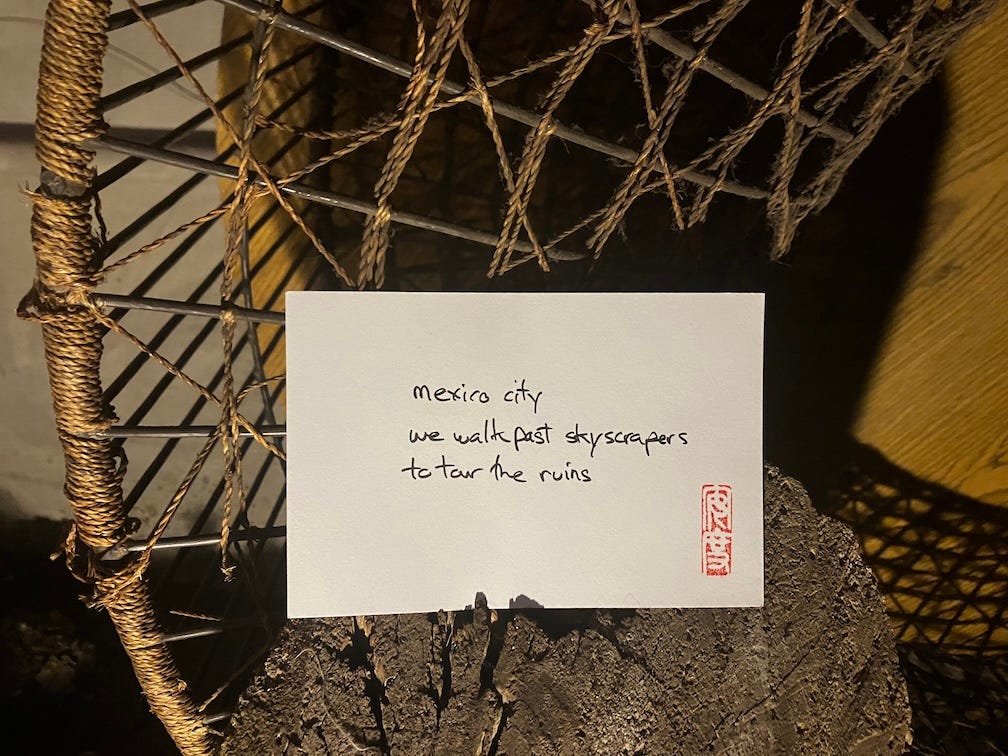 mexico city
we walk past skyscrapers
to tour the ruins